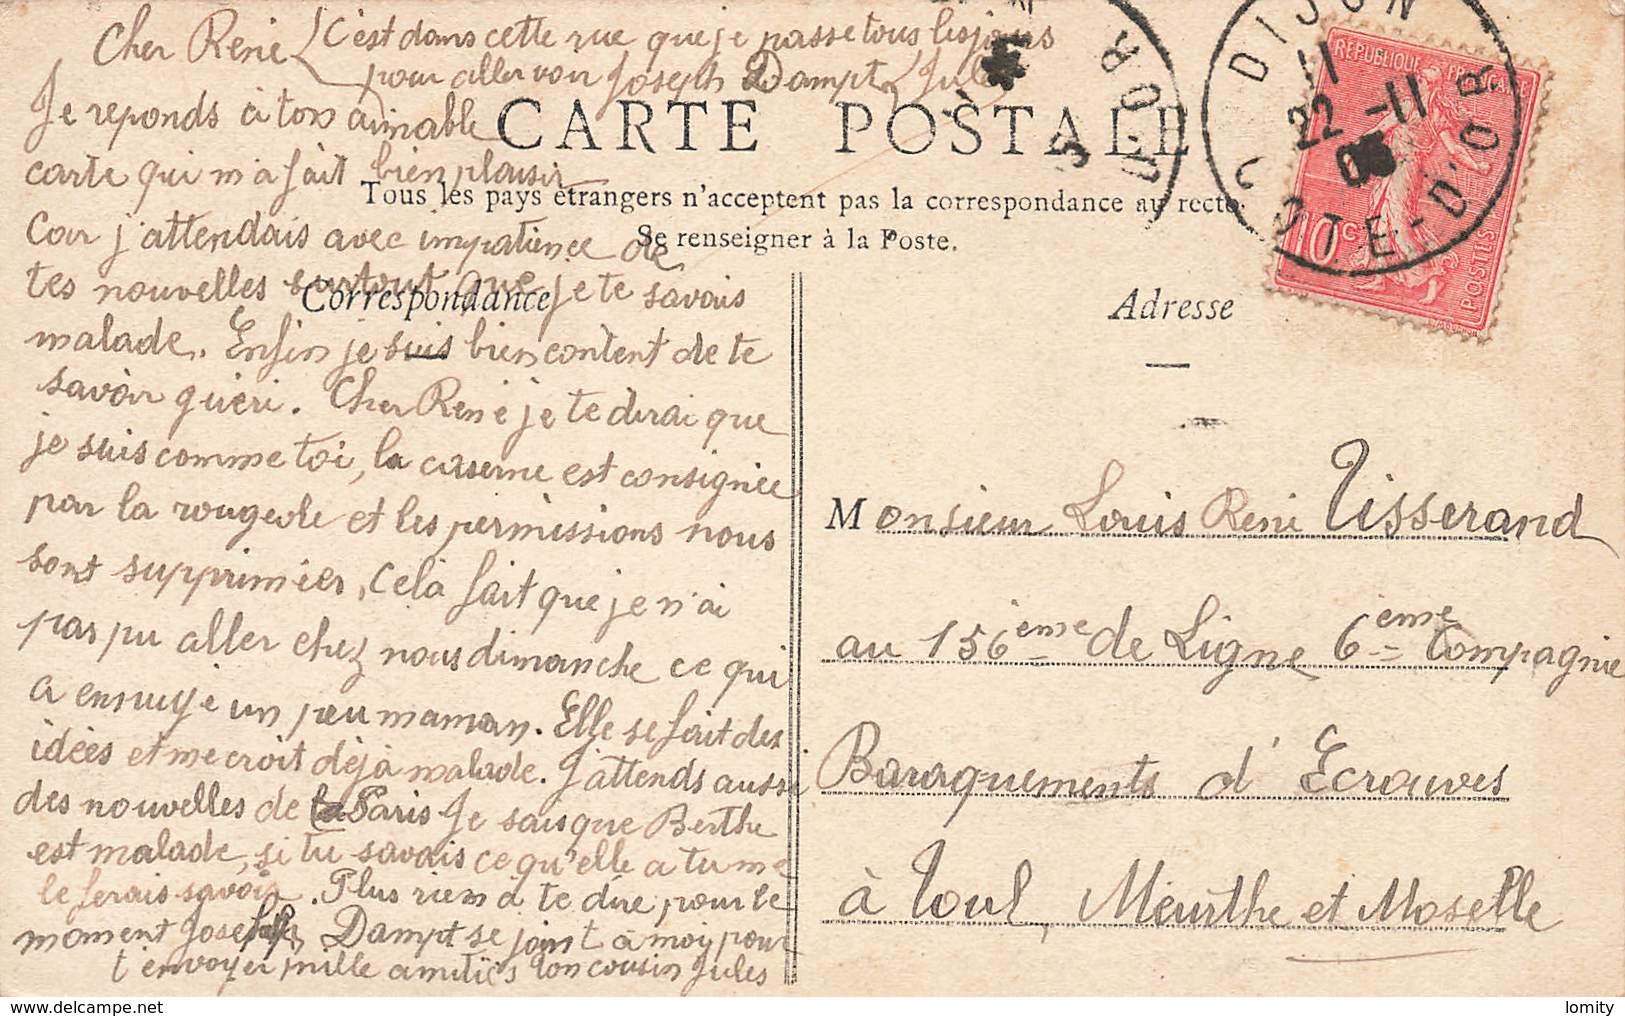 Cher René C'est dans cette rue que je passe tous les jours
pour aller voir Joseph Dampt Jules
Je reponds à ton aimable
carte qui m'a fait bien plaisir
Car j'attendais avec impatience de
tes nouvelles surtout que je te savais
malade. Enfin je suis bien content de te
savoir guéri. Cher René je te dirai que
je suis comme toi, la caserne est consignée
par la rougeole et les permissions nous
sont supprimées, cela fait que je n'ai
pas pu aller chez nous dimanche ce qui
a ennuyé un peu maman. Elle se fait des
idées et me croit déjà malade. J'attends aussi
des nouvelles de Paris Je sais que Berthe
est malade, si tu savais ce qu'elle a tu me
le ferais savoir. Plus rien à te dire pour le
moment Joseph Dampt se joint à moi pour
t'envoyer mille amitiés Ton cousin Jules
CARTE POSTALE
Tous les pays étrangers n'acceptent pas la correspondance au recto.
Se renseigner à la Poste.
Correspondance
Adresse
Monsieur Louis René Tisserand
au 156ème de Ligne 6ème Compagnie
Baraquements d'Ecrouves
à Toul, Meurthe et Moselle
DIJON
11
22 -11
COTE-D'OR
D'OR
RÉPUBLIQUE FRANÇAISE
10 C
POSTES
www.delcampe.net
lomity